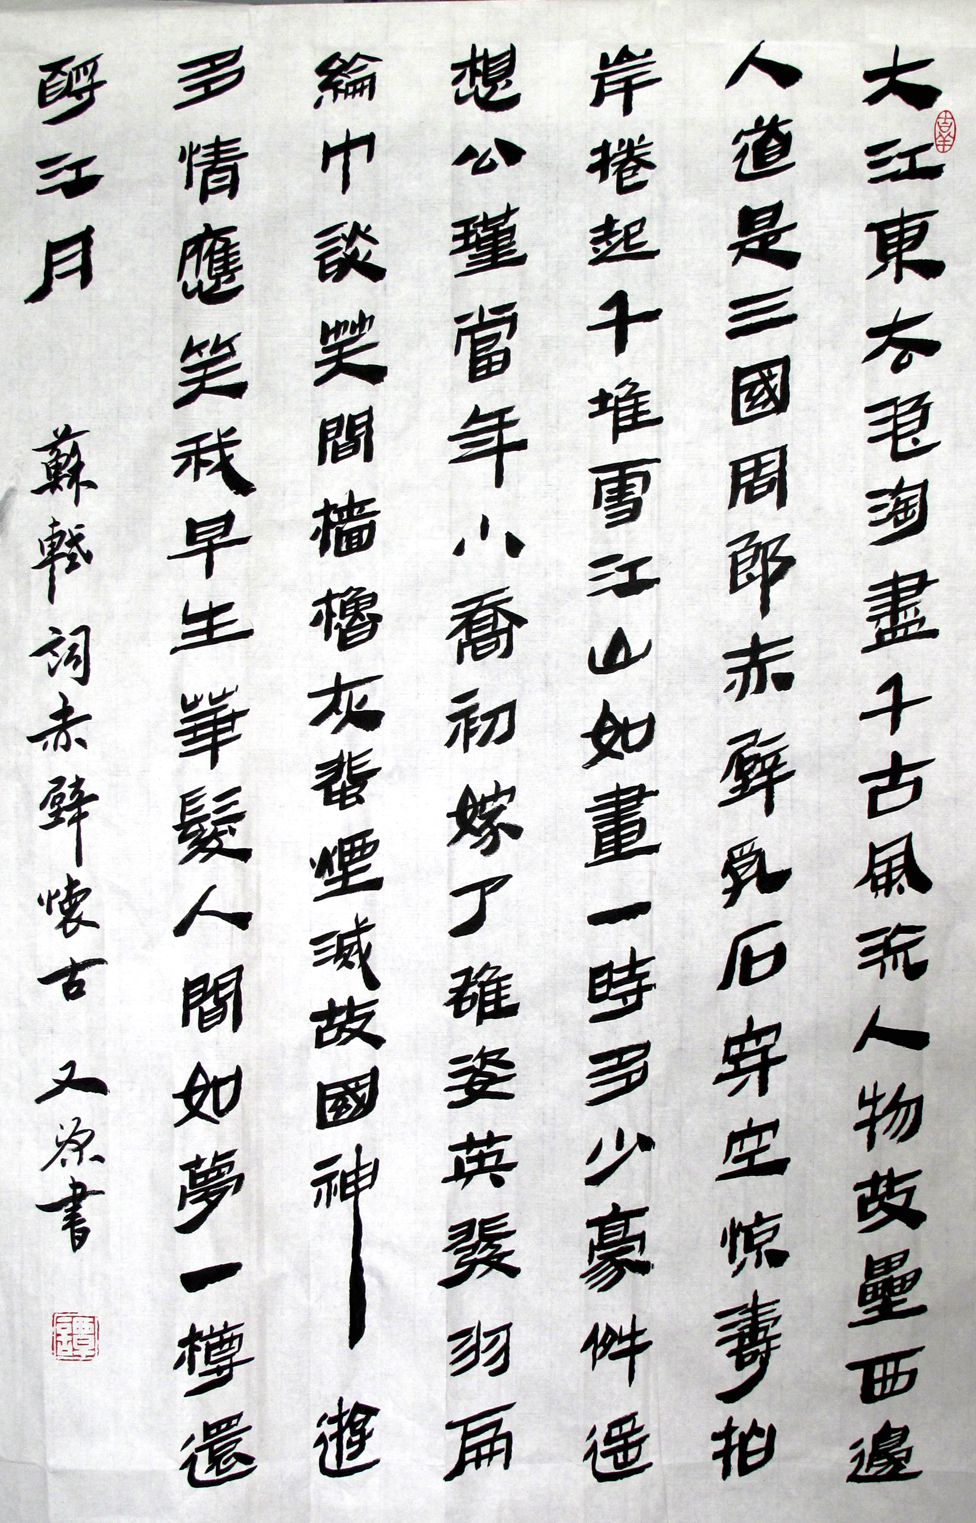 大江東去浪淘盡千古風流人物故壘西邊
人道是三國周郎赤壁乳石穿空惊壽拍
岸捲起千堆雪江山如畫一時多少豪傑遥
想公瑾當年小喬初嫁了雄姿英發羽扇
綸巾談笑間檣櫓灰蜚煙滅故國神遊
多情應笑我早生華髮人間如夢一樽還
酹江月 蘇軾詞赤壁懷古 又書